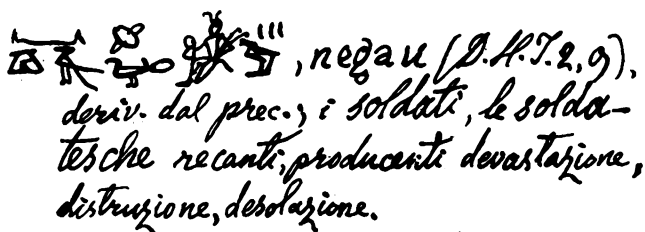 , negau (D.H.I.2,9),
deriv. dal prec., i soldati, le solda-
tesche recanti, producenti devastazione,
distruzione, desolazione.